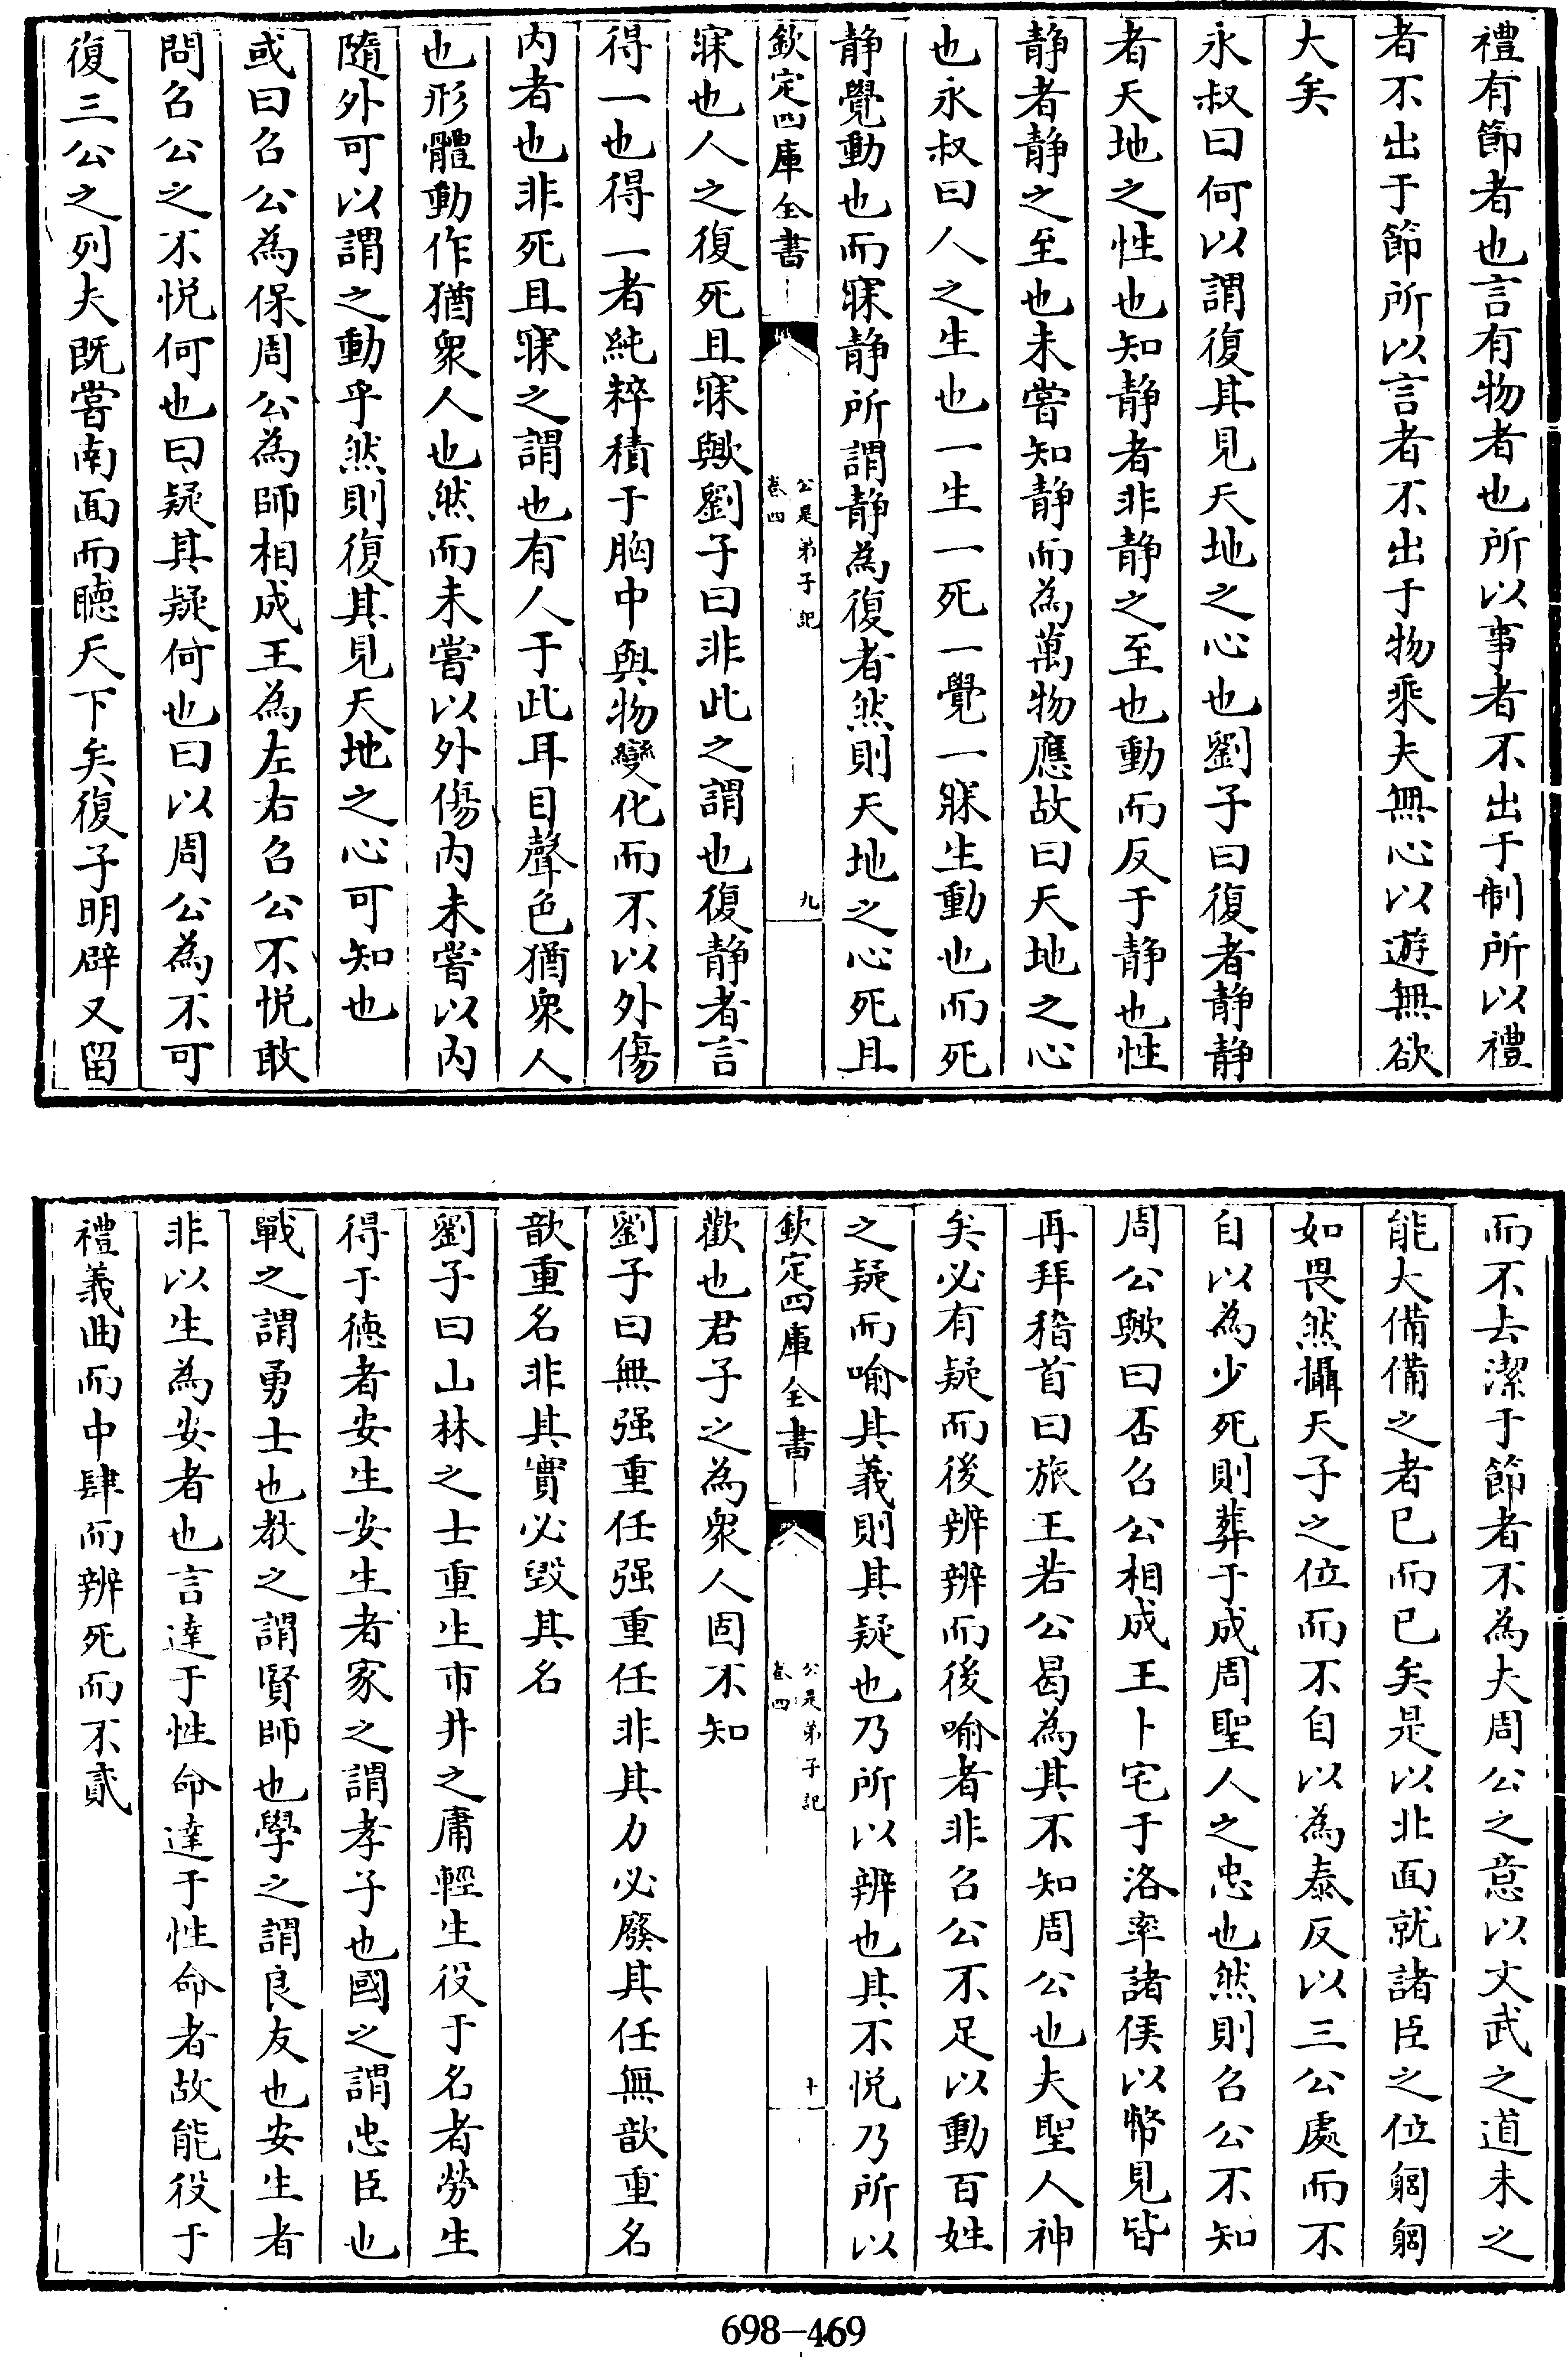 禮有節者也言有物者也所以事者不出于制所以禮
者不出于節所以言者不出于物乘夫無心以遊無欲
大矣
永叔曰何以謂復其見天地之心也劉子曰復者静静
者天地之性也知静者非静之至也動而反于静也性
静者静之至也未嘗知静而為萬物應故曰天地之心
也永叔曰人之生也一生一死一覺一寐生動也而死
静覺動也而寐静所謂静為復者然則天地之心死且
欽定四庫全書
公是弟子記
卷四
九
寐也人之復死且寐歟劉子曰非此之謂也復静者言
得一也得一者純粹積于胸中與物變化而不以外傷
内者也非死且寐之謂也有人于此耳目聲色猶衆人
也形體動作猶衆人也然而未嘗以外傷内未嘗以内
隨外可以謂之動乎然則復其見天地之心可知也
或曰召公為保周公為師相成王為左右召公不悦敢
問召公之不悦何也曰疑其疑何也曰以周公為不可
復三公之列夫既嘗南面而聴天下矣復子明辟又留
而不去潔于節者不為夫周公之意以文武之道未之
能大備備之者已而已矣是以北面就諸臣之位躬躬
如畏然攝天子之位而不自以為泰反以三公處而不
自以為少死則葬于成周聖人之忠也然則召公不知
周公歟曰否召公相成王卜宅于洛率諸侯以幣見皆
再拜稽首曰旅王若公曷為其不知周公也夫聖人神
矣必有疑而後辨辨而後喻者非召公不足以動百姓
之疑而喻其義則其疑也乃所以辨也其不悦乃所以
欽定四庫全書
公是弟子記
卷四
十
歡也君子之為衆人固不知
劉子曰無强重任强重任非其力必廢其任無歆重名
歆重名非其實必毀其名
劉子曰山林之士重生市井之庸輕生役于名者勞生
得于德者安生安生者家之謂孝子也國之謂忠臣也
戰之謂勇士也教之謂賢師也學之謂良友也安生者
非以生為安者也言達于性命達于性命者故能役于
禮義曲而中肆而辨死而不貳
698-469